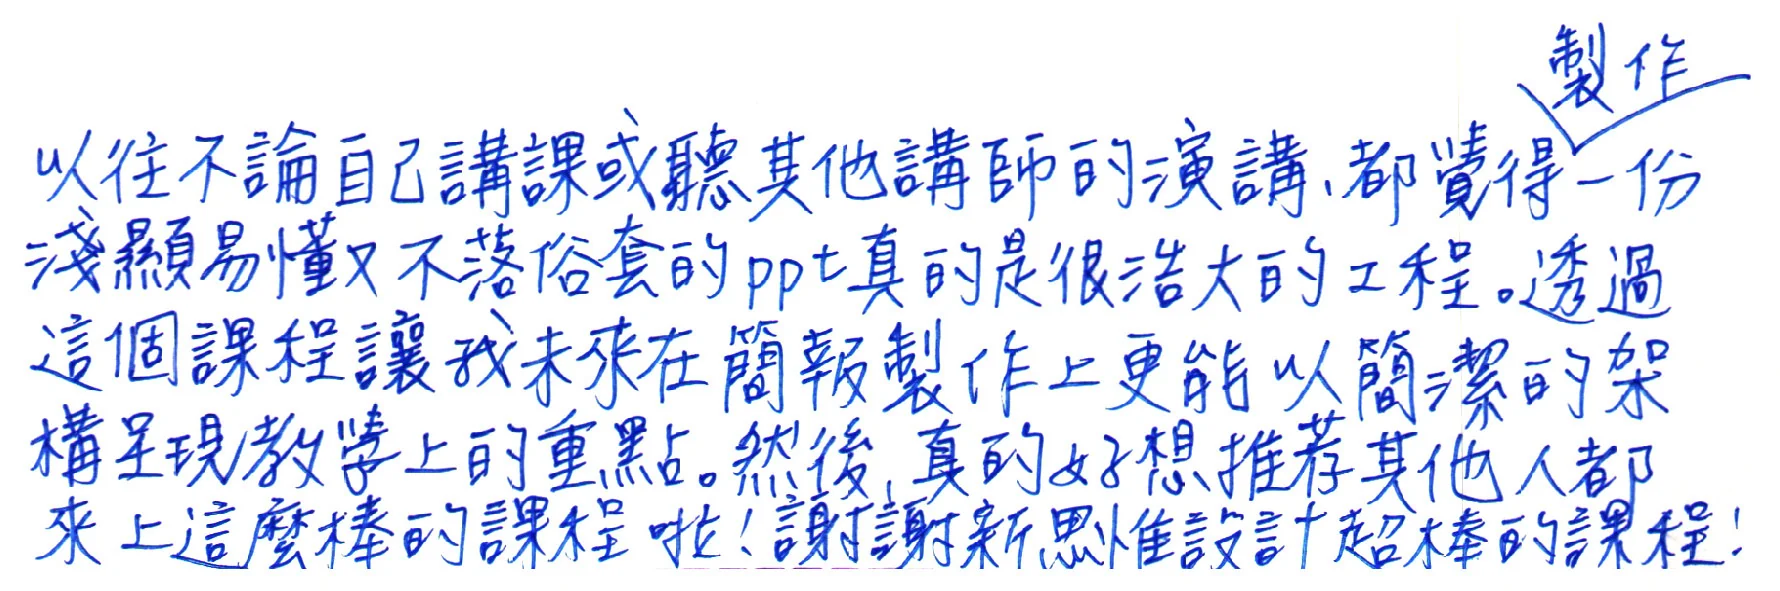 製作
以往不論自己講課或聽其他講師的演講、都覺得一份
淺顯易懂又不落俗套的ppt真的是很浩大的工程。透過
這個課程讓我未來在簡報製作上更能以簡潔的架
構呈現教學上的重點。然後,真的好想推荐其他人都
來上這麼棒的課程啦!謝謝新思惟設計超棒的課程!